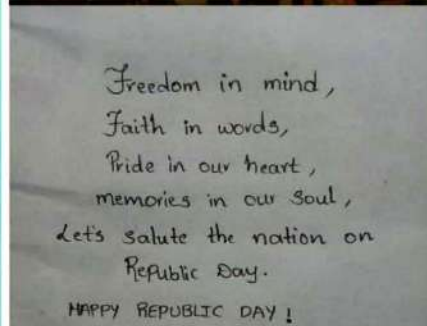 Freedom in mind,
Faith in words,
Pride in our heart,
memories in our Soul,
Let's salute the nation on
Republic Day.
HAPPY REPUBLIC DAY !